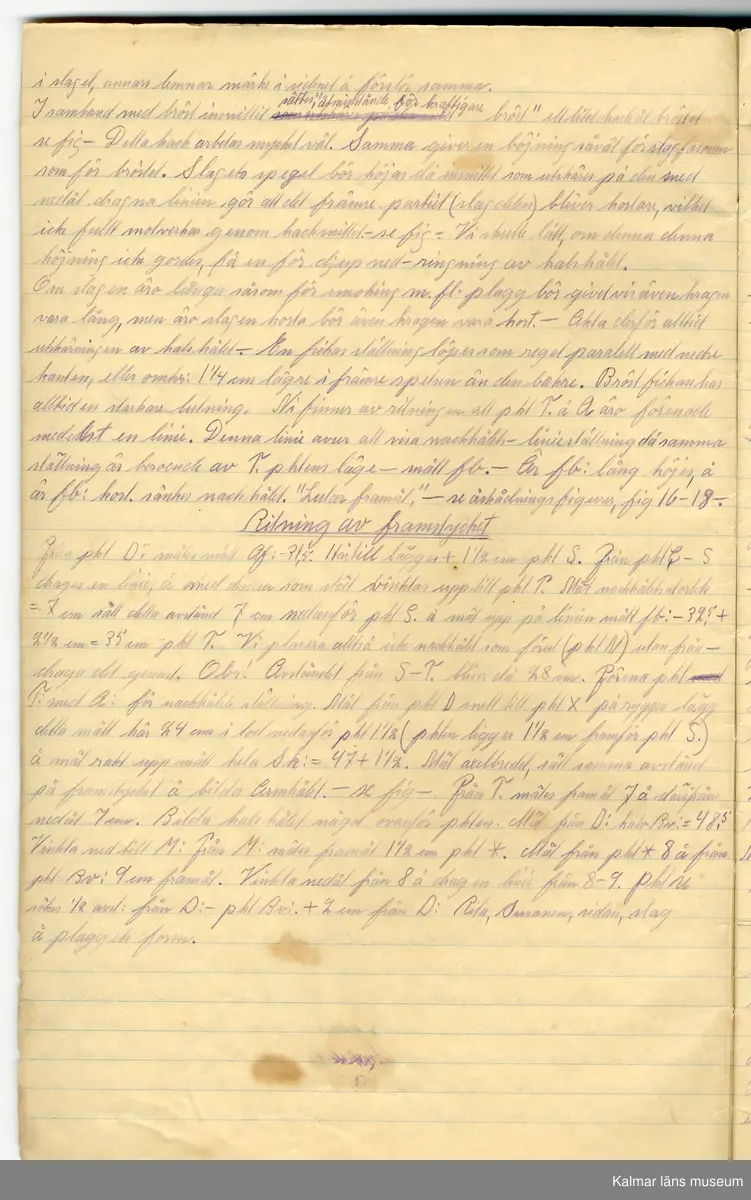 i slaget, annars lemnar märke i sidenet å förstör samma.
sättes, åtminstonde, bör kraftigare
I samband med bröst inmittit bröst" ett litet hack åt bröstet
se fig— Detta hack arbetar mycket väl. Samma giver en böjning såväl för slag fasonen
som för bröstet. Slagets spegel bör höjas då inmittet som utskäres på den sned
nedåt dragna linien gör att det främre partiet (slagdelen) bliver kortare, vilket
icke fullt motverkar genom hackmittet—se fig— Vi skulle lätt, om denna denna
höjning icke gordes, få en för djup ned-ringning av halshålet.
Om slagen äro långa såsom för smoking m.fl. plagg bör givetvis även kragen
vara lång, men äro slagen korta bör även kragen vara kort.— Akta derför alltid
utskärningen av halshålet— En fickas ställning löper som regel paralelt med nedre
kanten, eller omkr: 1¼ cm lägre i främre spetsen än den bakre. Bröstfickan har
alltid en starkare lutning. Ni finner av ritningen att pkt T. å A äro förenade
medelst en linie. Denna linie avser att visa nackhålets—linieställning då samma
ställning är beroende av T. pktens läge—mått fb.— Är fb: lång höjes, å
är fb: kort. sänkes nackhålet. "Lutar framåt,"—se åskådningsfigurer, fig 16-18-.
Ritning av framstycket
Från pkt D: mätes mått Af:-31,5. Härtill lägges + 1½ cm pkt S. Från pkt G - S
drages en linie, å med denna som stöt vinklas upp till pkt P. Mått nackhålets storlek
= 7 cm sätt detta avstånd 7 cm nedanför pkt S. å mät upp på linien mått fb:-32,5 +
2½ cm = 35 cm pkt T. Vi placera alltså icke nackhålet som förut (pkt N) utan från-
draga det genast. Obs! Avståndet från S-T. bliver då 28 cm. Förena pkt
T: med A: för nackhålets ställning. Mät från pkt D snett till pkt X på ryggen lägg
detta mått här 24 cm i lod nedanför pkt 1½ (pkten ligger 1½ cm framför pkt S.)
å mät rakt upp mått hela Sk: = 47 + 1½. Mät axelbredd, sätt samma avstånd
på framstycket å bilda ärmhålet.— se fig—. Från T. mätes framåt 7 å därifrån
nedåt 7 cm. Bilda halshålet något ovanför pkten. Mät från D: halv Bv: = 48,5
Vinkla ned till M: Från M: mätes framåt 1½ cm pkt *. Mät från pkt * 8 å från
pkt Bv: 9 cm framåt. Vinkla nedåt från 8 å drag en linie från 8-9. Pkt
sökes ½ avst: från D:- pkt Bv:. + 2 cm från D: Rita, Svansen, sidan, slag
å plaggets form.
Kalmar läns museum